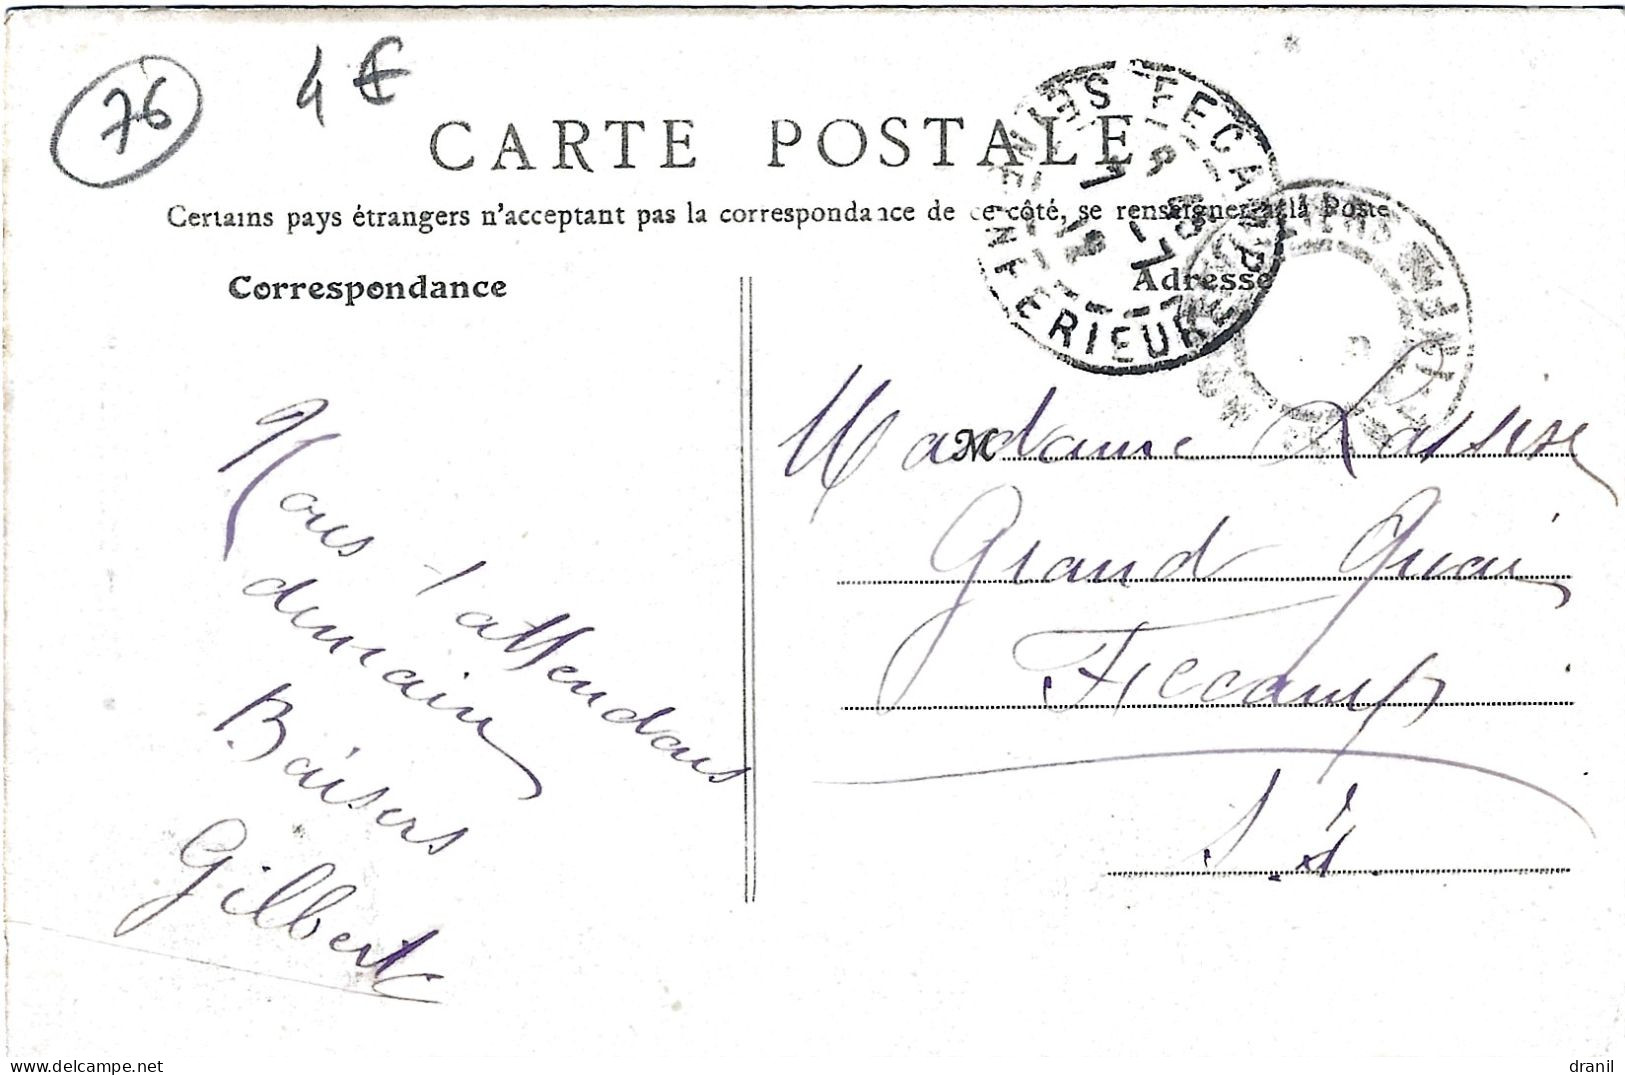 76
4 €
CARTE POSTALE
Certains pays étrangers n'acceptent pas la correspondance de ce côté, se renseigner à la Poste
Correspondance
Adresse
FECAMP
SEINE INFERIEURE
Nous t'attendons
demain
Baisers
Gilbert
Madame Lassise
M
Grand Quai
Fecamp
S. I.
dranil